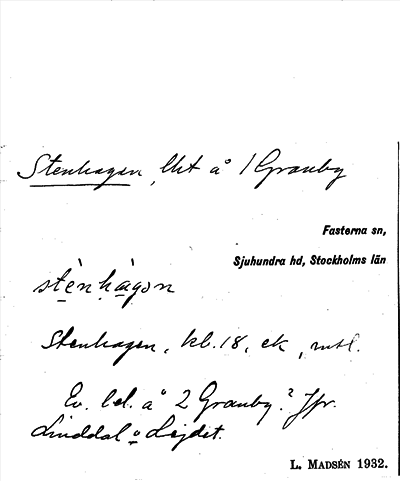 Stenhagen, lht å 1 Granby
Fasterna sn,
Sjuhundra hd, Stockholms län
stènhàgon
Stenhagen, kl. 18, ek, mtl.
Ev. ld. å 2 Granby? Jfr.
Linddal o Lejdet.
L. MADSÉN 1932.